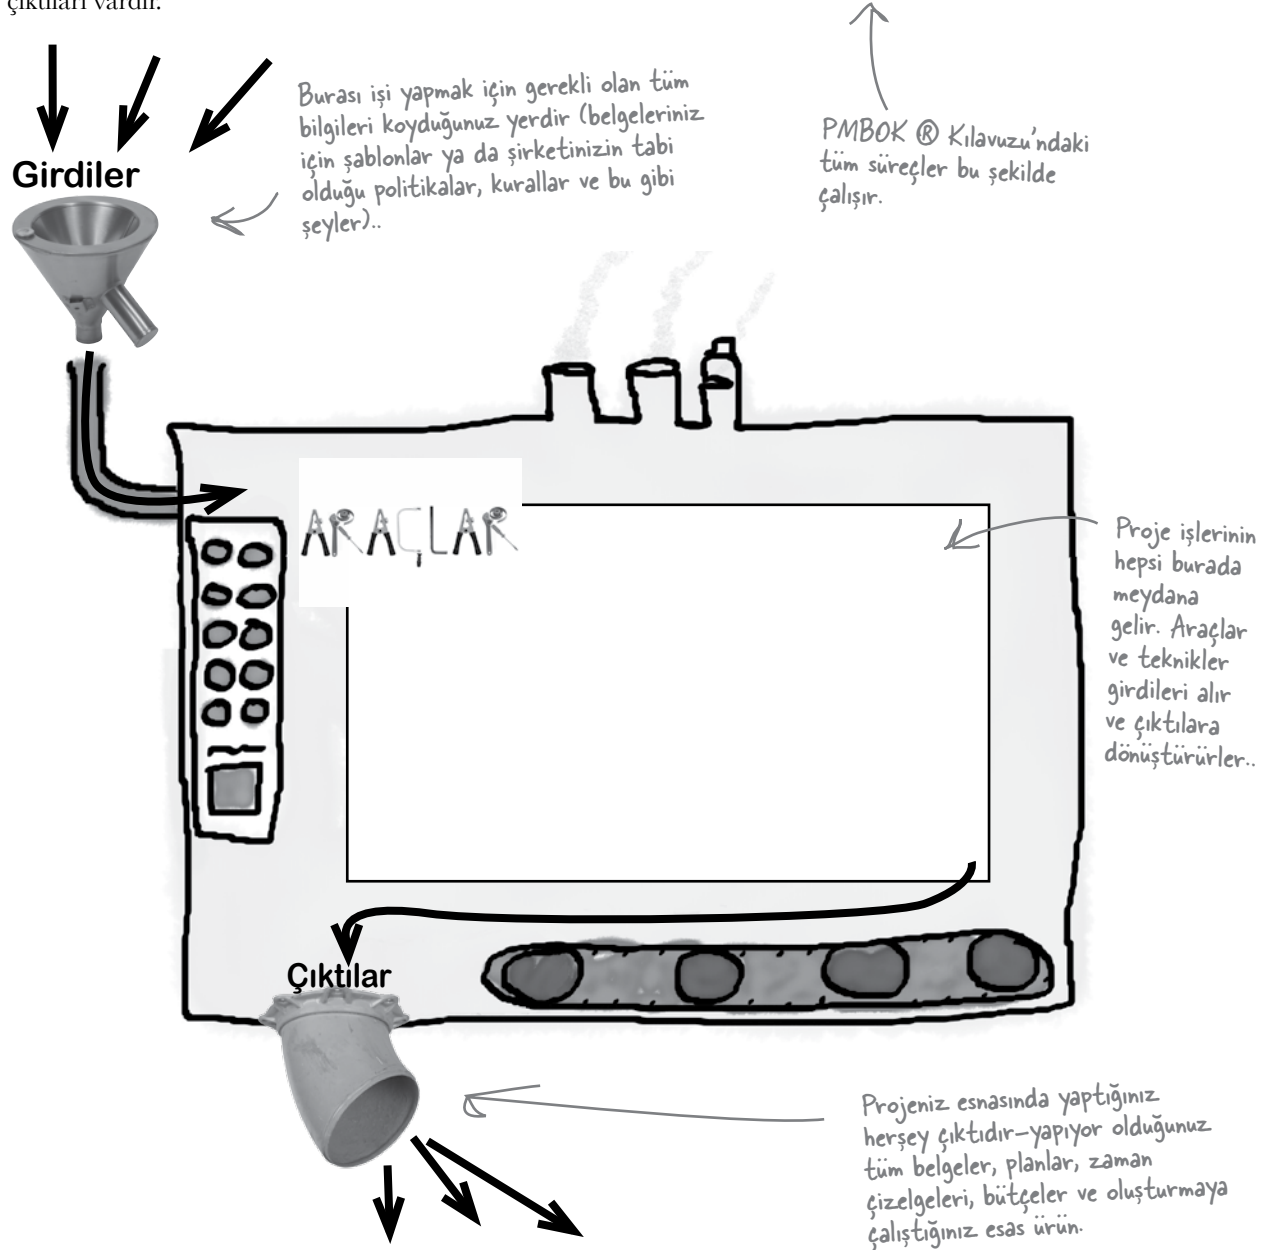 çıktıları vardır.
Burası işi yapmak için gerekli olan tüm
bilgileri koyduğunuz yerdir (belgeleriniz
için şablonlar ya da şirketinizin tabi
olduğu politikalar, kurallar ve bu gibi
şeyler)..
PMBOK ® Kılavuzu'ndaki
tüm süreçler bu şekilde
çalışır.
Girdiler
ARAÇLAR
Proje işlerinin
hepsi burada
meydana
gelir. Araçlar
ve teknikler
girdileri alır
ve çıktılara
dönüştürürler..
Çıktılar
Projeniz esnasında yaptığınız
herşey çıktıdır–yapıyor olduğunuz
tüm belgeler, planlar, zaman
çizelgeleri, bütçeler ve oluşturmaya
çalıştığınız esas ürün.